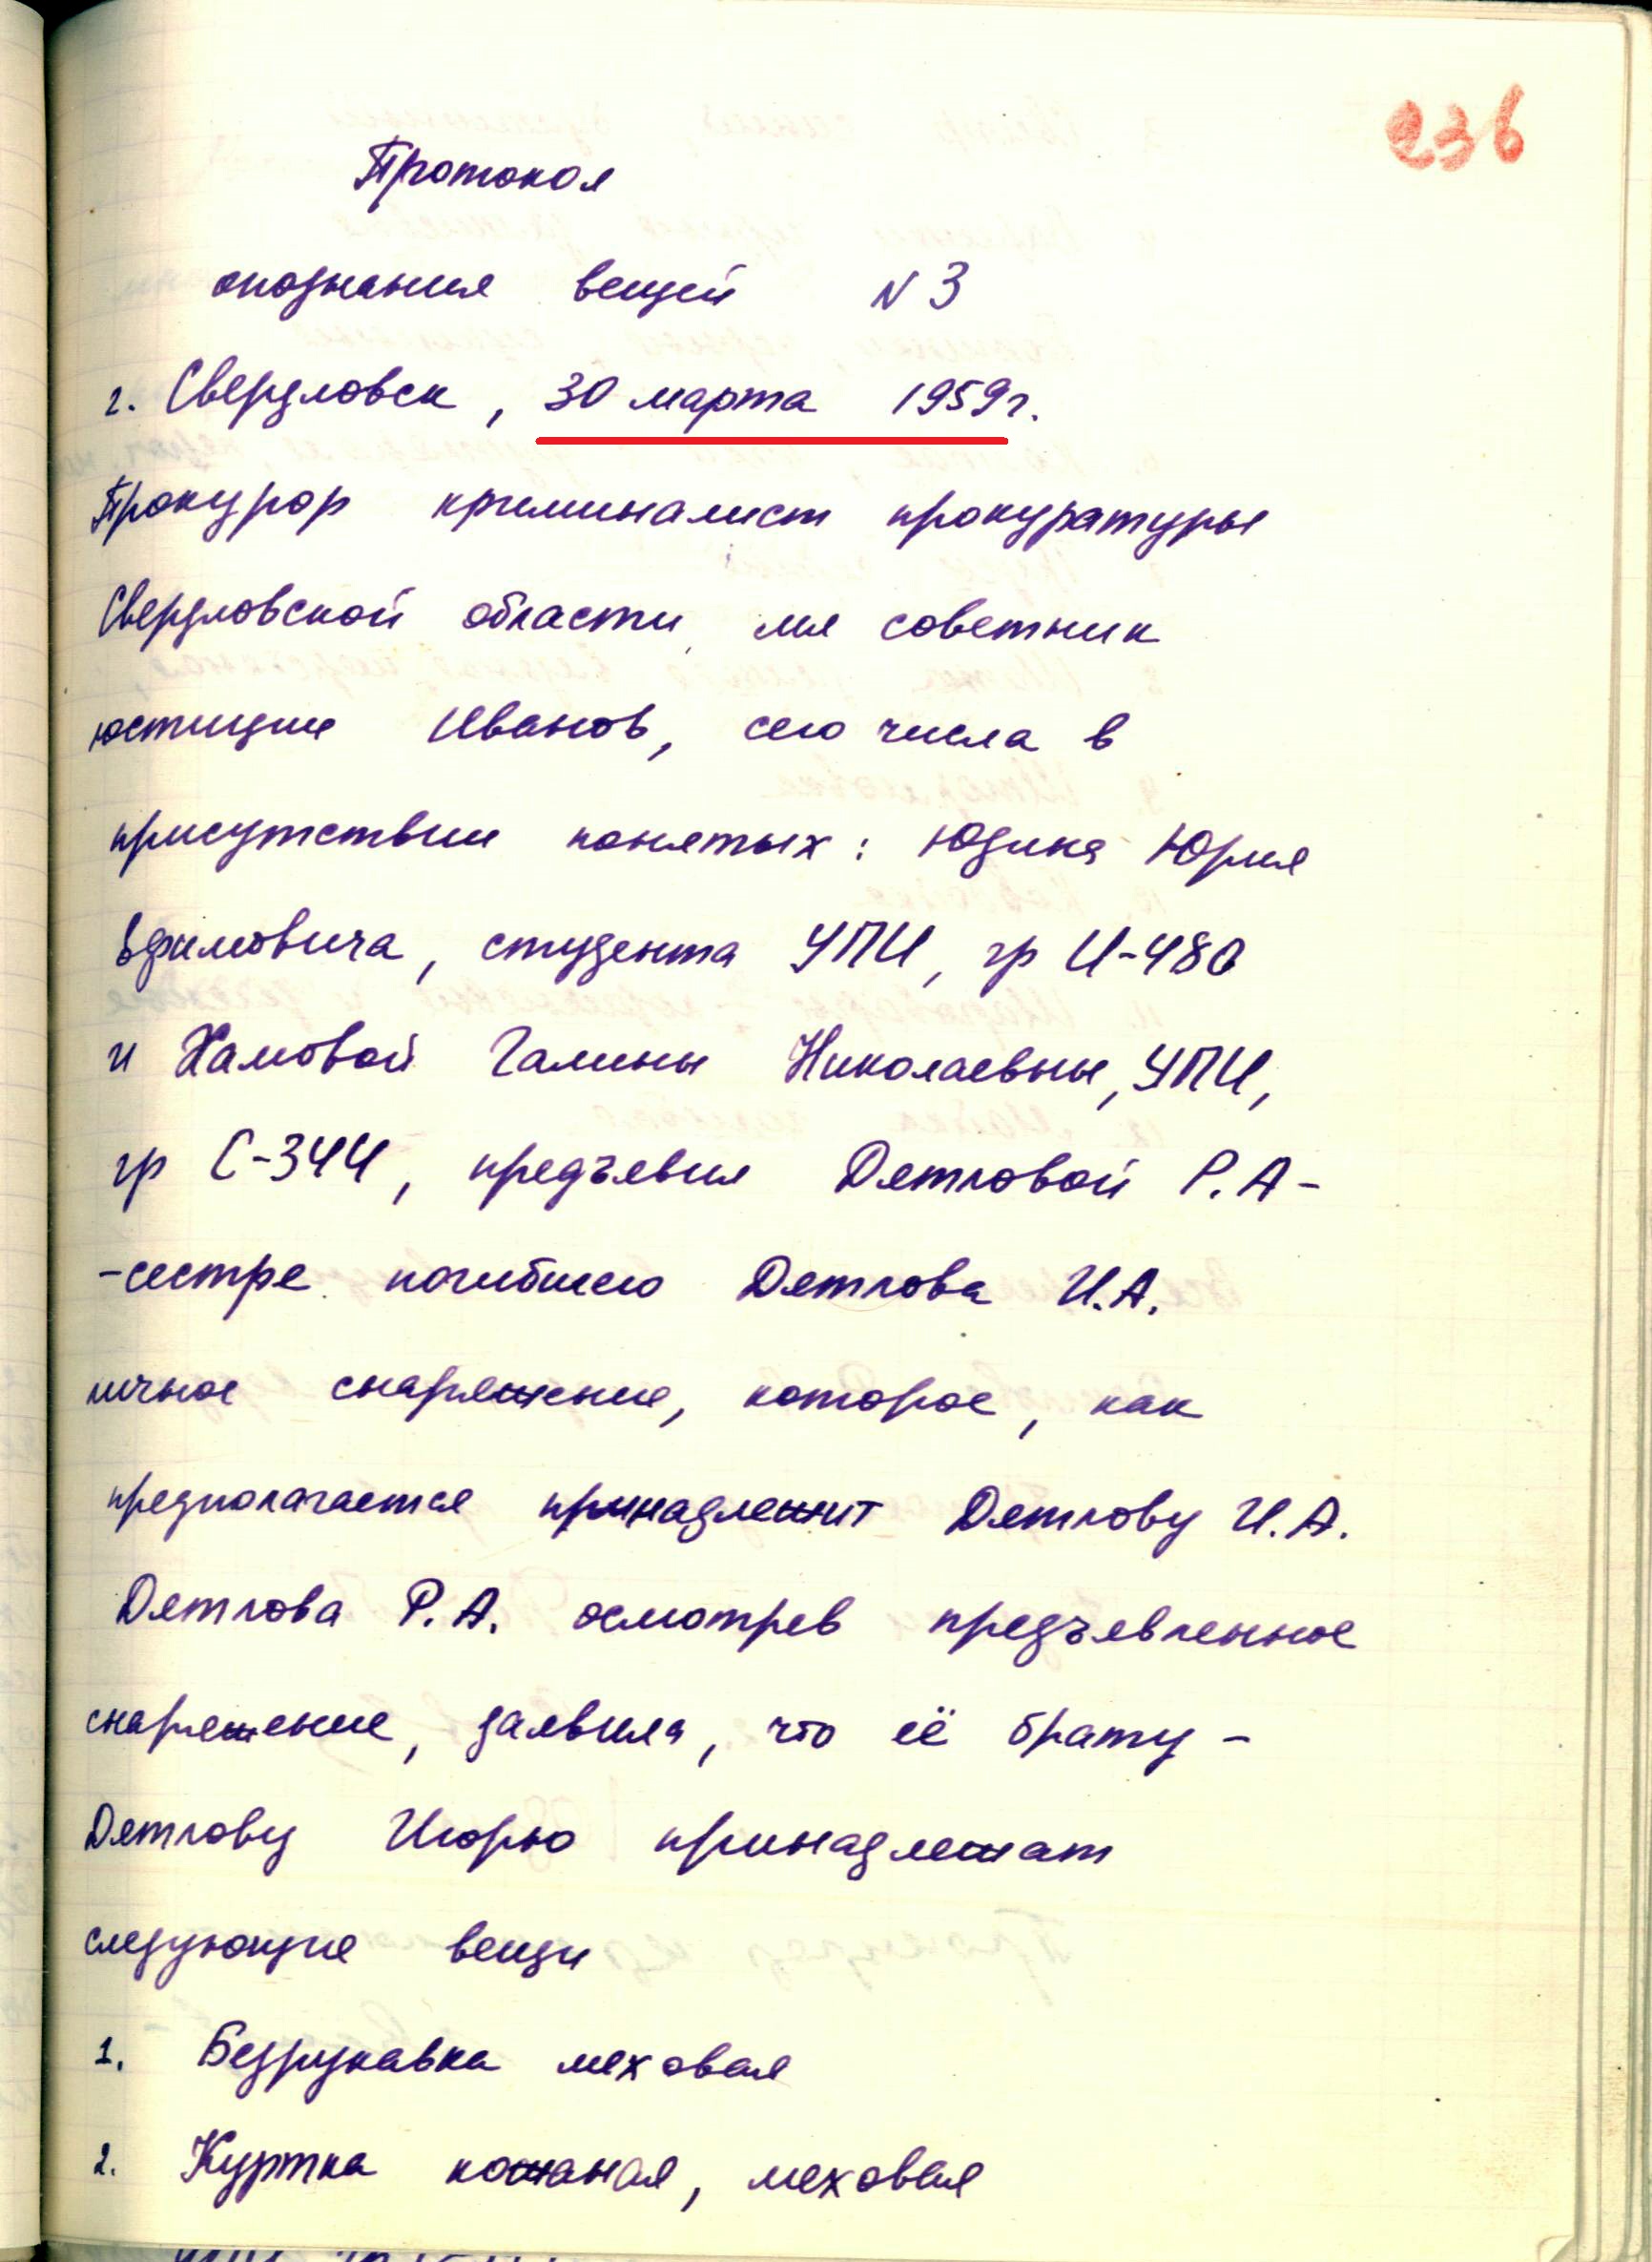 236
Протокол
опознания вещей N 3
г. Свердловск, 30 марта 1959г.
Прокурор криминалист прокуратуры
Свердловской области мл советник
юстиции Иванов, сего числа в
присутствии понятых: Юдина Юрия
Ефимовича, студента УПИ, гр И-480
и Хамовой Галины Николаевны, УПИ,
гр С-344, предъявил Дятловой Р.А-
-сестре погибшего Дятлова И.А.
личное снаряжение, которое, как
предполагается принадлежит Дятлову И.А.
Дятлова Р.А. осмотрев предъявленное
снаряжение, заявила, что её брату -
Дятлову Игорю принадлежат
следующие вещи
1. Безрукавка меховая
2. Куртка кожаная, меховая